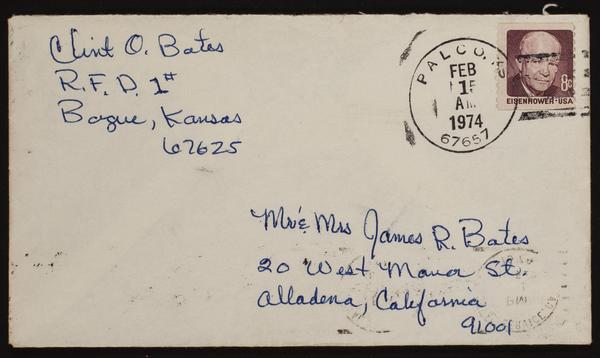 Clint O. Bates
R.F.D. 1#
Bogue, Kansas
67625
PALCO, KS
FEB
15
AM
1974
67657
8¢
EISENHOWER·USA
Mr & Mrs James R. Bates
20 West Manor St.
Alladena, California
91001